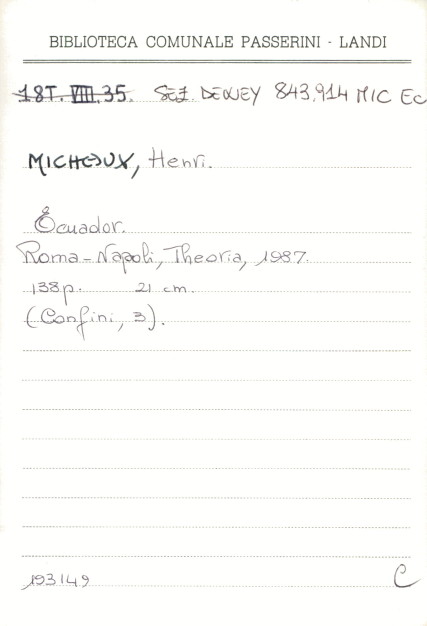 BIBLIOTECA COMUNALE PASSERINI - LANDI
18T. VIII. 35. SEZ. DEWEY 843.914 MIC Ec
MICHAUX, Henri.
Ecuador.
Roma - Napoli, Theoria, 1987.
138p. 21 cm.
(Confini, 3).
193149 C